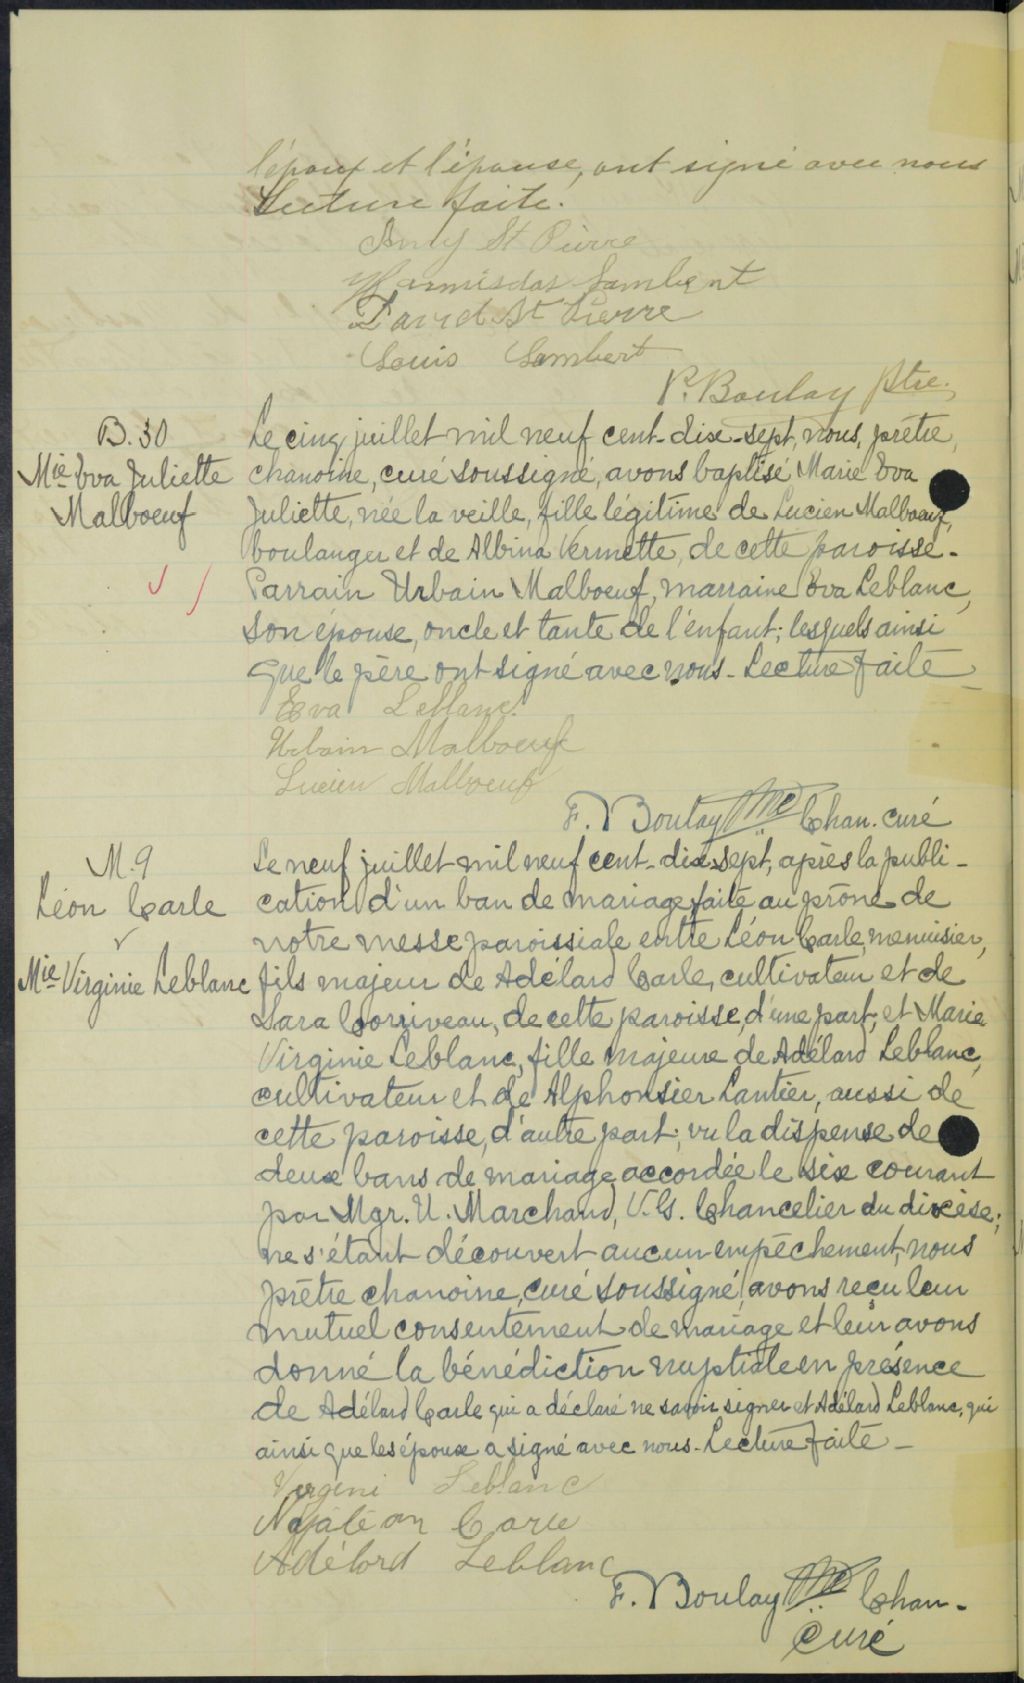 l'époux et l'épouse, ont signé avec nous
Lecture faite.
St Pierre
Harmisdas Lambert
David St Pierre
Louis Lambert
P. Boulay Ptre.
B. 30
Mie Eva Juliette
Malboeuf
Le cinq juillet mil neuf cent-dix-sept, nous, prêtre,
chanoine, curé soussigné, avons baptisé Marie Eva
Juliette, née la veille, fille légitime de Lucien Malboeuf,
boulanger et de Albina Vermette, de cette paroisse.
Parrain Urbain Malboeuf, marraine Eva Leblanc,
son épouse, oncle et tante de l'enfant; lesquels ainsi
que le père ont signé avec nous. Lecture faite
Eva Leblanc
Urbain Malboeuf
Lucien Malboeuf
F. Boulay Ptre Chan. curé
M. 9
Léon Carle
Mie Virginie Leblanc
Le neuf juillet mil neuf cent-dix-sept, après la publi-
cation d'un ban de mariage faite au prône de
notre messe paroissiale entre Léon Carle, menuisier,
fils majeur de Adélard Carle, cultivateur et de
Sara Corriveau, de cette paroisse, d'une part; et Marie
Virginie Leblanc, fille majeure de Adélard Leblanc,
cultivateur et de Alphonsier Lantier, aussi de
cette paroisse, d'autre part; vu la dispense de
deux bans de mariage accordée le six courant
par Mgr. U. Marchand, V.G. Chancelier du diocèse;
ne s'étant découvert aucun empêchement, nous
prêtre chanoine, curé soussigné, avons reçu leur
mutuel consentement de mariage et leur avons
donné la bénédiction nuptiale en présence
de Adélard Carle qui a déclaré ne savoir signer et Adélard Leblanc, qui
ainsi que les époux a signé avec nous. Lecture faite
Vergini Leblanc
Adélord Leblanc
F. Boulay Ptre Chan.
Curé